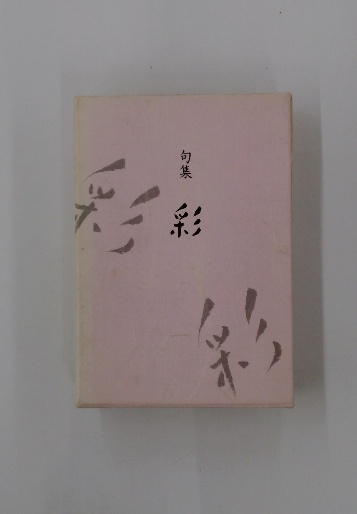 句集
彩
彩
彩